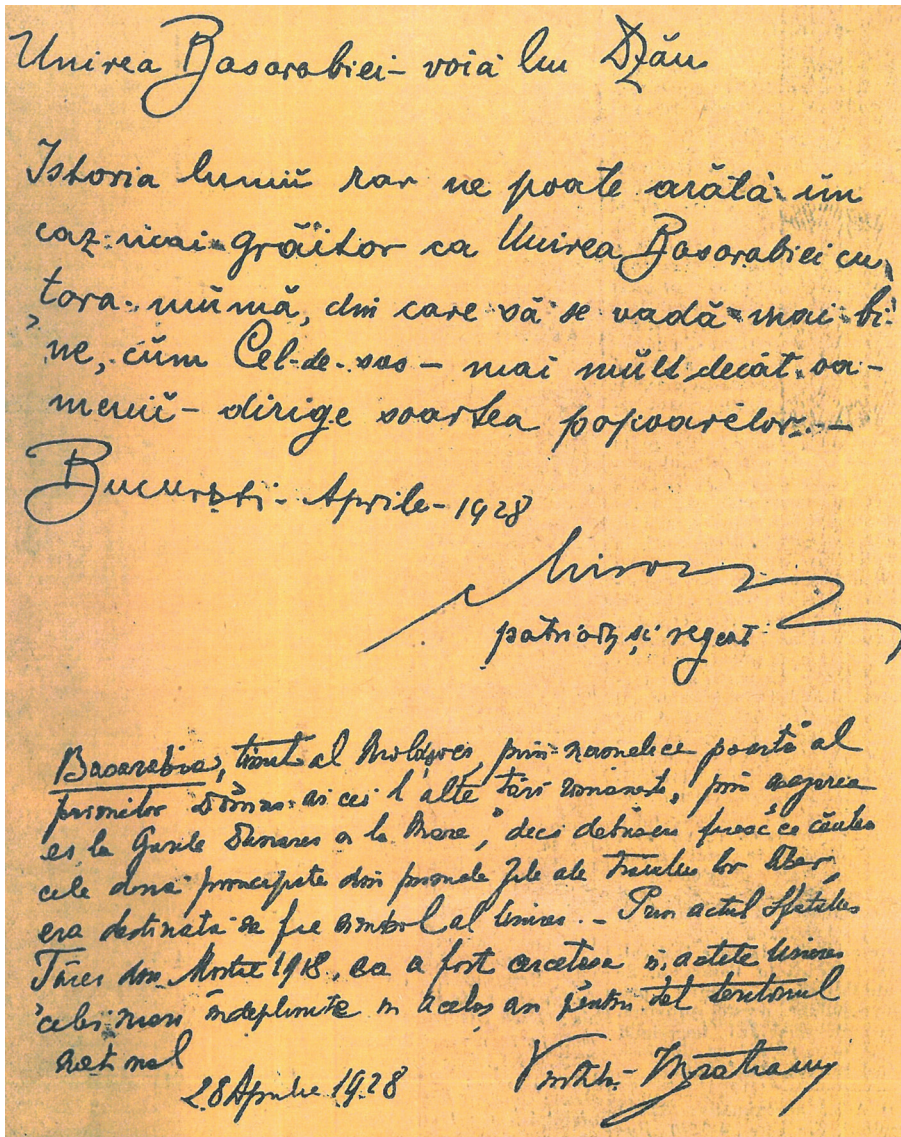 Unirea Basarabiei – voia lui Dzău
Istoria lumii rar ne poate arătà un
caz mai grăitor ca Unirea Basarabiei cu
țara-mŭmă, din care să se vadă mai bi-
ne, cŭm Cel-de-sus – mai mŭlt decât oa-
menii – dirige soartea popoarelor. –
Bucureşti – Aprile – 1928
Miron
patriarh şi regent
Basarabia, ţinut al Moldovei, prin numele ce poartă al
primilor Domni ai cei l'alte Ţări româneşti, prin aşezarea
ei la Gurile Dunărei şi la Mare, deci debuşeu firesc ce căutau
cele două principate din primele zile ale traiului lor liber,
era destinată să fie simbol al Unirei. – Prin actul Sfatului
Ţărei din Martie 1918, ea a fost şi actele Unirei
celei mari îndeplinite în acelaş an pentru tot teritoriul
naţional
28 Aprilie 1928
Vintilă Brătianu